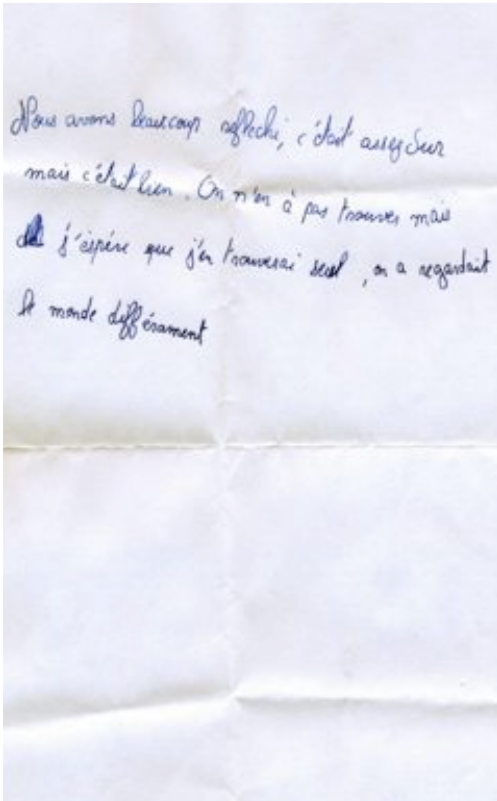 Nous avons beaucoup réflechi, c'était assez Dur
mais c'était bien. On n'en à pas trouver mais
j'éspère que j'en trouverai seul, on a regardait
le monde différament